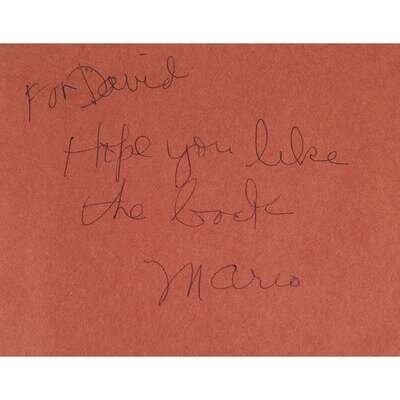 For David
Hope you like
the book
Mario